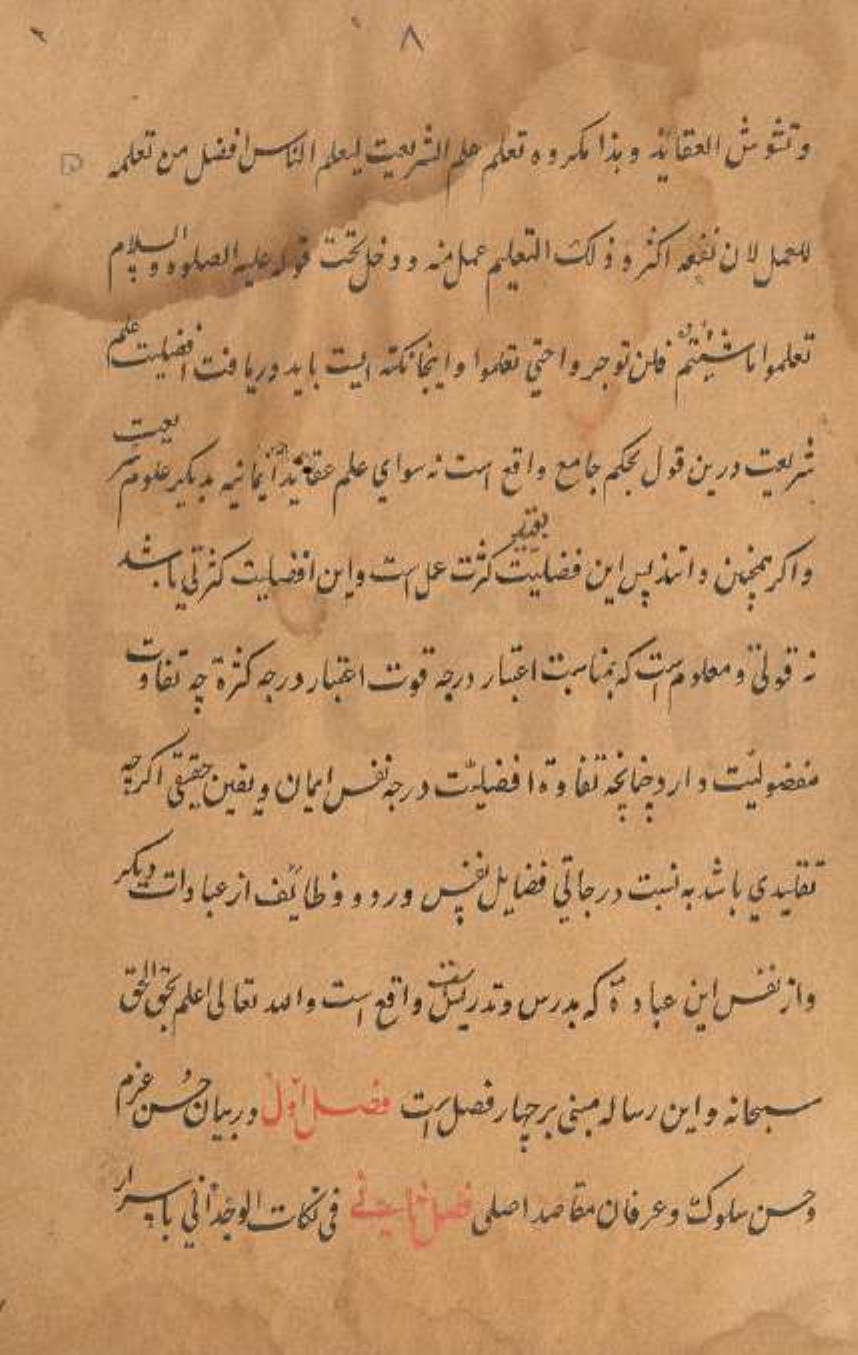 ٨
وتشوش العقائد وهذا مکروه تعلم علم الشریعت لیعلم الناس افضل من تعلمه
للعمل لان نفعه اکثر و ذلک التعلیم عمل منه و دخل تحت قوله علیه الصلوة و السلام
تعلموا ما شئتم فلن توجروا حتی تعلموا و اینجا نکته ایست باید دریافت افضلیت علم
شریعت درین قول بحکم جامع واقع است نه سوای علم عقائد ایمانیه بدیگر علوم شریعت
و اگر همچنین دانند پس این فضلیت بقید کثرت عمل است و این افضلیت کثرتی باشد
نه قوتی و معلوم است که بمناسبت اعتبار درجه قوت اعتبار درجه کثرة چه تفاوت
مفضولیت دارد چنانچه تفاوة افضلیت درجه نفس ایمان و یقین حقیقی اگرچه
تقلیدی باشد به نسبت درجاتی فضایل نفس ورد و وظائف از عبادات دیگر
و از نفس این عبادة که بدرس و تدریس واقع است والله تعالی اعلم بحق الحق
سبحانه و این رساله مبنی بر چهار فصل است فصل اول در بیان حسن عزم
و حسن سلوک و عرفان مقاصد اصلی فصل فی نکات الوجدانی باسرار